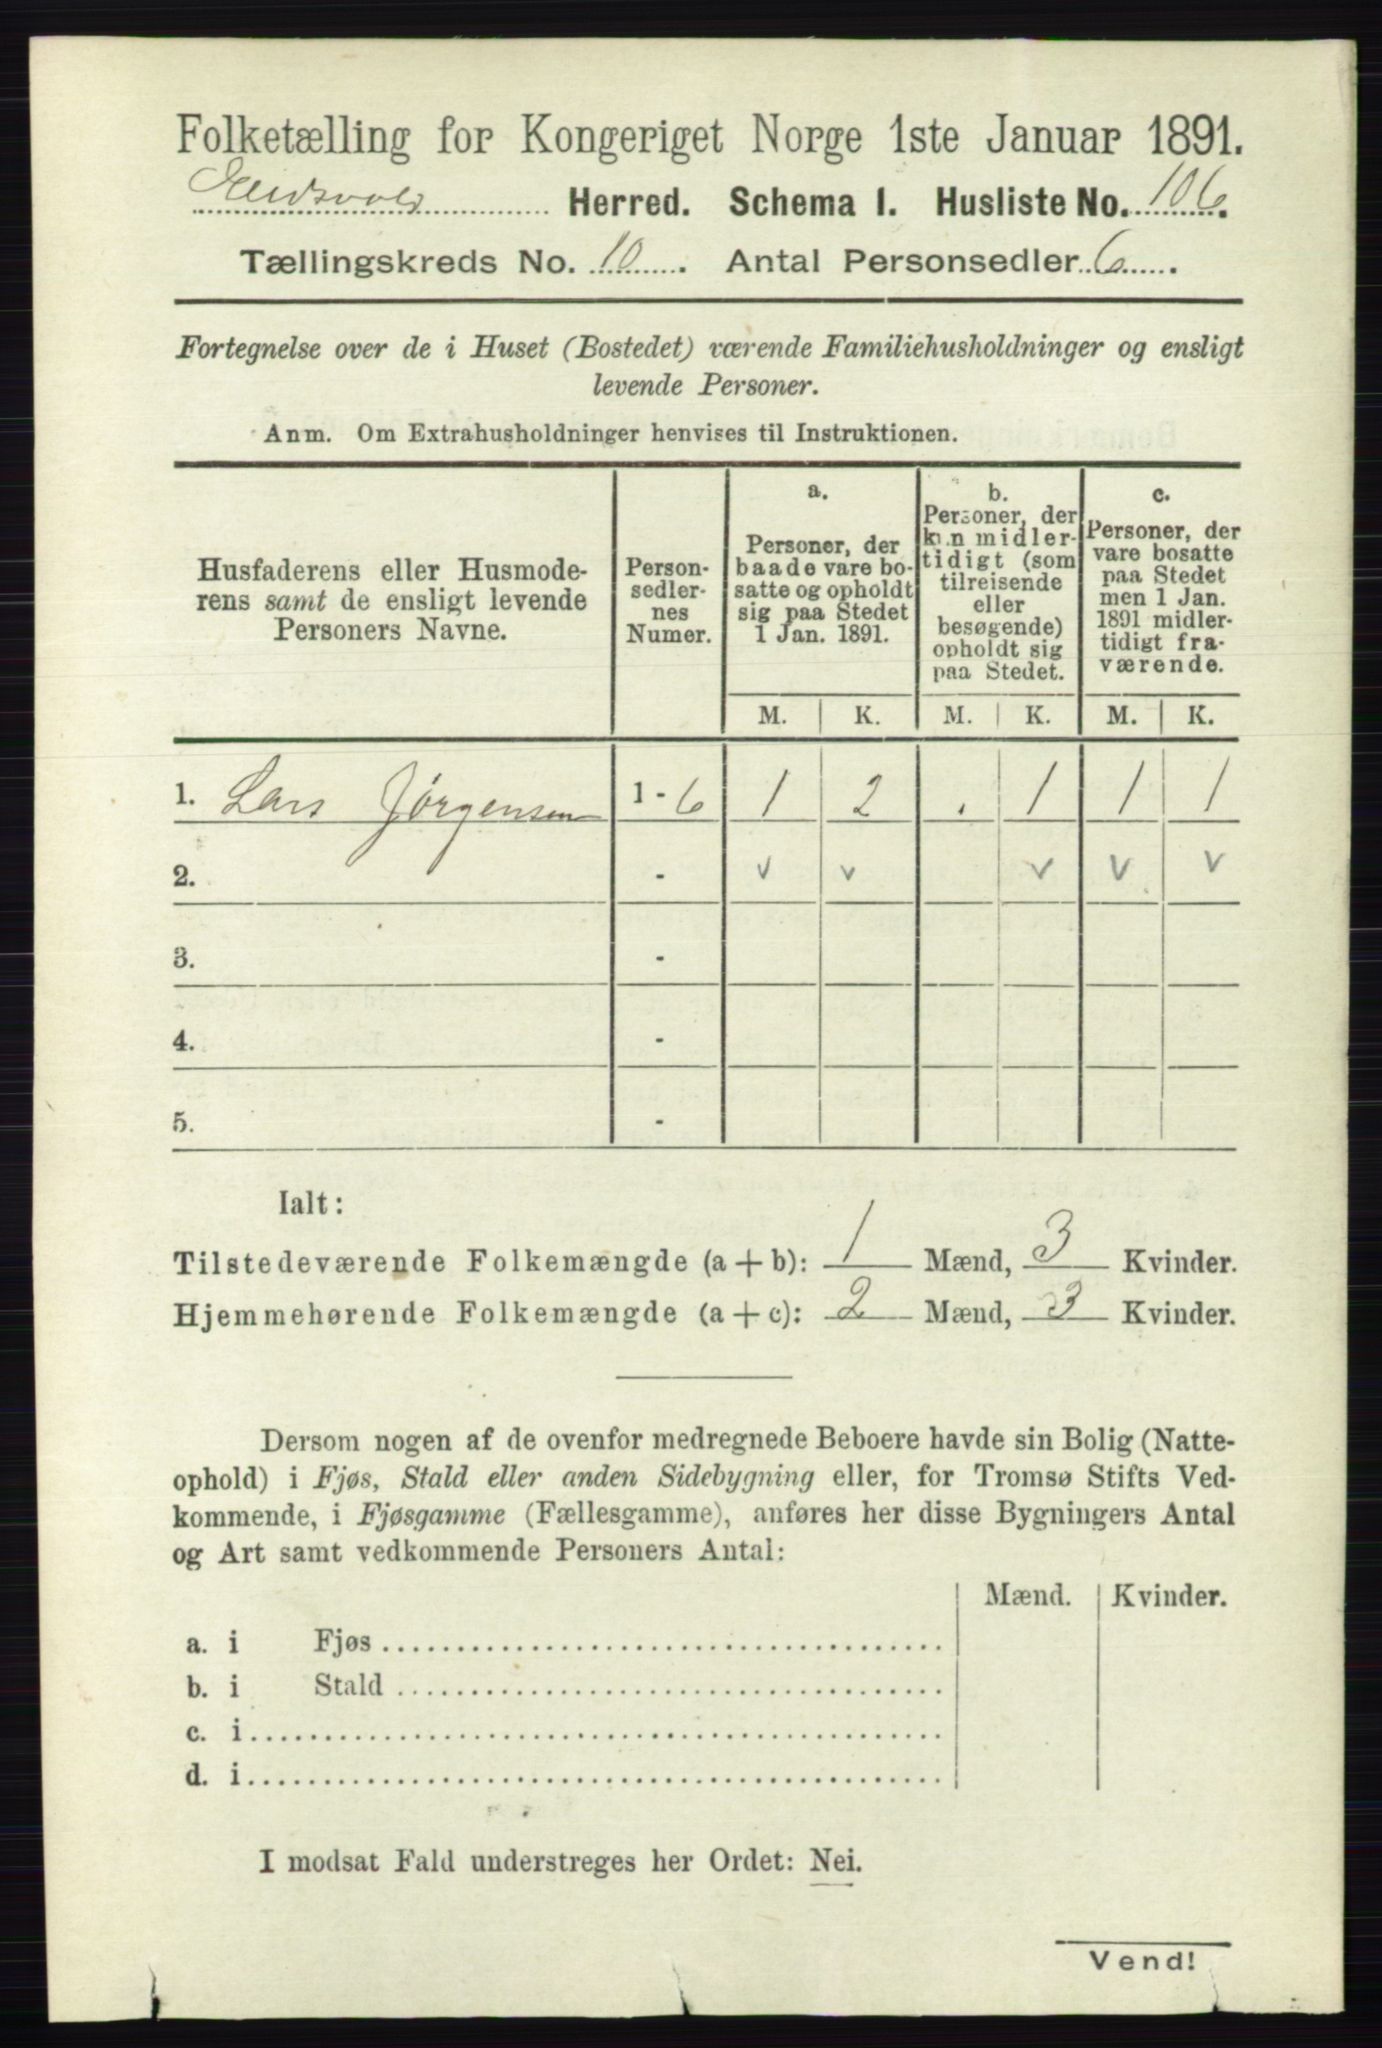 Folketælling for Kongeriget Norge 1ste Januar 1891.
Eidsvold Herred. Schema 1. Husliste No. 106.
Tællingskreds No. 10. Antal Personsedler 6.
Fortegnelse over de i Huset (Bostedet) værende Familiehusholdninger og ensligt
levende Personer.
Anm. Om Extrahusholdninger henvises til Instruktionen.
Husfaderens eller Husmode-
rens samt de ensligt levende
Personers Navne.
Person-
sedler-
nes
Numer.
a.
Personer, der
baade vare bo-
satte og opholdt
sig paa Stedet
1 Jan. 1891.
b.
Personer, der
kun midler-
tidigt (som
tilreisende
eller
besøgende)
opholdt sig
paa Stedet.
c.
Personer, der
vare bosatte
paa Stedet
men 1 Jan.
1891 midler-
tidigt fra-
værende.
M. K. M. K. M. K.
1. Lars Jørgensen 1 - 6 1 2 . 1 1 1
2. - v v v v v
3. -
4. -
5. -
Ialt:
Tilstedeværende Folkemængde (a + b): 1 Mænd, 3 Kvinder.
Hjemmehørende Folkemængde (a + c): 2 Mænd, 3 Kvinder.
Dersom nogen af de ovenfor medregnede Beboere havde sin Bolig (Natte-
ophold) i Fjøs, Stald eller anden Sidebygning eller, for Tromsø Stifts Ved-
kommende, i Fjøsgamme (Fællesgamme), anføres her disse Bygningers Antal
og Art samt vedkommende Personers Antal:
Mænd. Kvinder.
a. i Fjøs
b. i Stald
c. i
d. i
I modsat Fald understreges her Ordet: Nei.
Vend!